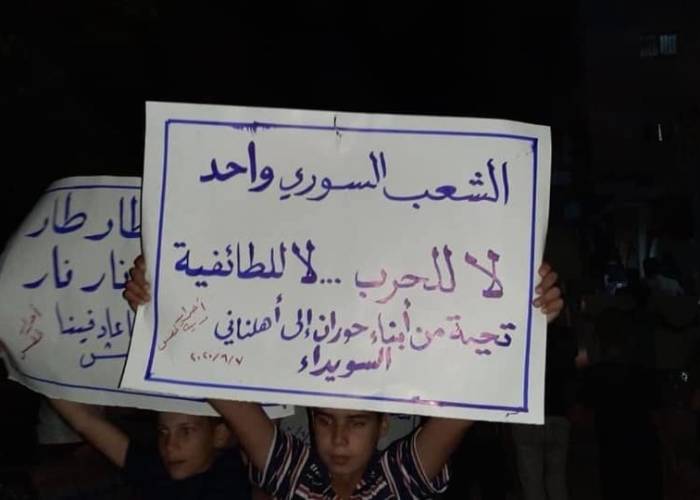 الشعب السوري واحد
لا للحرب ... لا للطائفية
تحية من أبناء حوران إلى أهلنا في
السويداء
أحرار
٢٠٢٠/٩/٧
طار طار
فار
عاد فينا